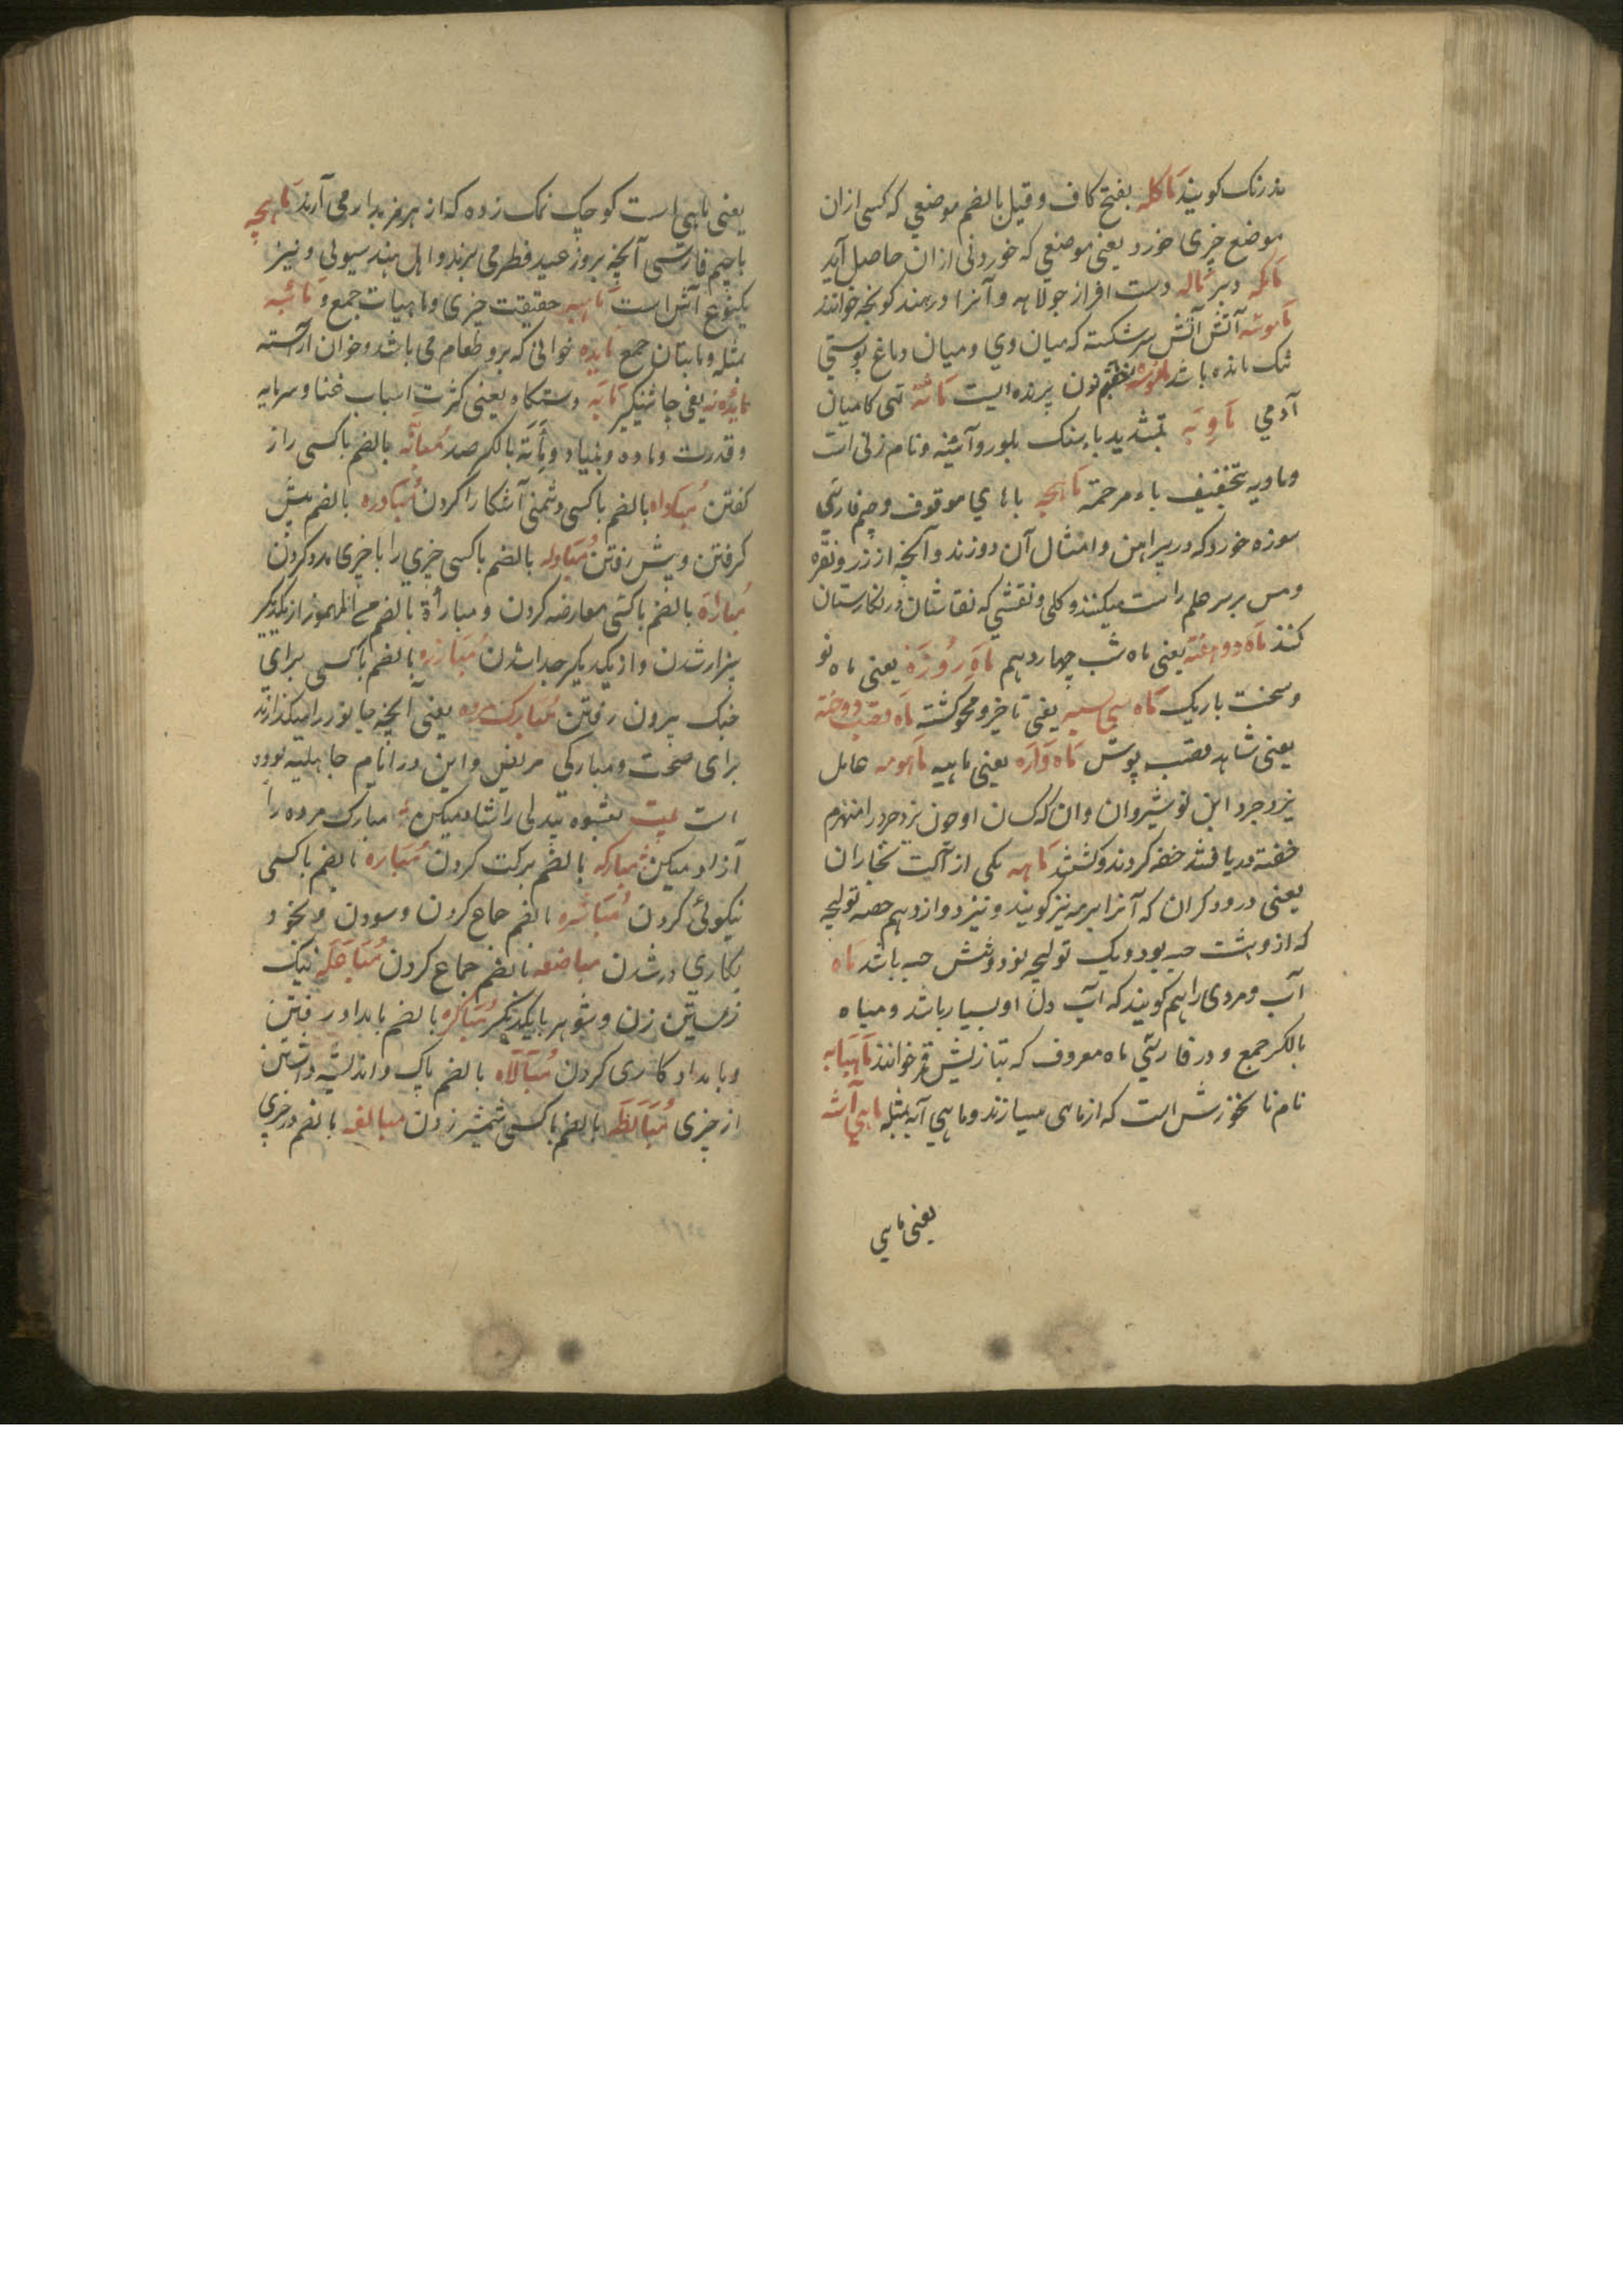 مذرنک کویند ماکله بفتح کاف و قیل بالضم موضعی که کسی ازان
موضع چیزی خورد یعنی موضعی که خوردنی ازان حاصل آید
ماکه دست افراز جولاهه و آنرا در هند کونچه خوانند
ماموشه آتش سرشکسته که میان وی و میان دماغ پوستی
تنک مانده باشد بضم نون پرنده ایست مانه تهی کامیان
آدمی ماویه بتشدید یاء سنک بلور و آئینه و نام زنی است
و ماویه بتخفیف یاء مرحمة ماهچه باهای موقوف و جیم فارسی
سوزه خورد که در پیراهن و امثال آن دوزند و آنچه از زر و نقره
و مس بر سر علم راست میکنند و کلی و نقشی که نقاشان در نکارستان
کنند ماه دو هفته یعنی ماه شب چهاردهم ماه روزه یعنی ماه نو
و سخت باریک ماه سی سپر یعنی تاخیر و محو کشته ماه قصب دوخته
یعنی شاهد قصب پوش ماه واره یعنی ماهیه ماهویه عامل
یزدجرد ابن نوشیروان و ان که کسان او چون یزدجرد را منهزم
خفته دریافتند خفه کردند و کشتند ماهه یکی از آلت نجاران
یعنی درودکران که آنرا برمه نیز کویند و نیز دوازدهم حصه تولیچه
که ازو هشت حبه بود و یک تولیچه نود و شش حبه باشد ماه
آب و مردی را هم کویند که آب دل او بسیار باشد و میاه
بالکسر جمع و در فارسی ماه معروف که بتازیش قمر خوانند ماهیابه
نام نانخورش است که از ماهی میسازند و ماهی آبه بمثله ماهی آشنه
یعنی ماهی
یعنی ماهی است کوچک نمک زده که از هرمز بدار می آرند ماهیچه
باجیم فارسی آنچه بروز عید فطر می برند و اهل هند سیوئی و نیز
یکنوع آش است ماهیه حقیقت چیزی و ماهیات جمع و مائبه
بمثله و مابتان جمع مایده خوانی که برو طعام می باشد و خوان آراسته
مایده نه یعنی چاشنیکیر مایه دستکاه یعنی کثرت اسباب غنا و سرمایه
و قدرت و ماده و بنیاد و مائة بالکسر صد بالضم باکسی راز
کفتن مباداه بالضم باکسی دشمنی آشکارا کردن مبادره بالضم پیش
کرفتن و پیش رفتن مبادله بالضم باکسی چیزی را با چیزی بدو کردن
مباراة بالضم باکسی معارضه کردن و مبارأة بالضم مع المهموز از یکدیکر
بیزار شدن و از یکدیکر جدا شدن مبارزه بالضم باکسی برای
جنک بیرون رفتن مبارک مرده یعنی آنچه جانور را میکذارند
برای صحت و مبارکی مریض و این در ایام جاهلیه بوده
است بیت بعشوه بیدلی را شاد میکن مبارک مرده را
آزاد میکن مبارکه بالضم برکت کردن مباره بالضم باکسی
نیکوئی کردن مباشره بالضم جماع کردن و سودن و بخود
بکاری در شدن مباضعه بالضم جماع کردن مباعله نیک
زیستن زن و شوهر بایکدیکر مباکره بالضم بامداد رفتن
و بامداد کاری کردن مبالاه بالضم باک و اندیشه داشتن
از چیزی مبالطه بالضم باکسی شمشیر زدن مبالغه بالضم در چیزی